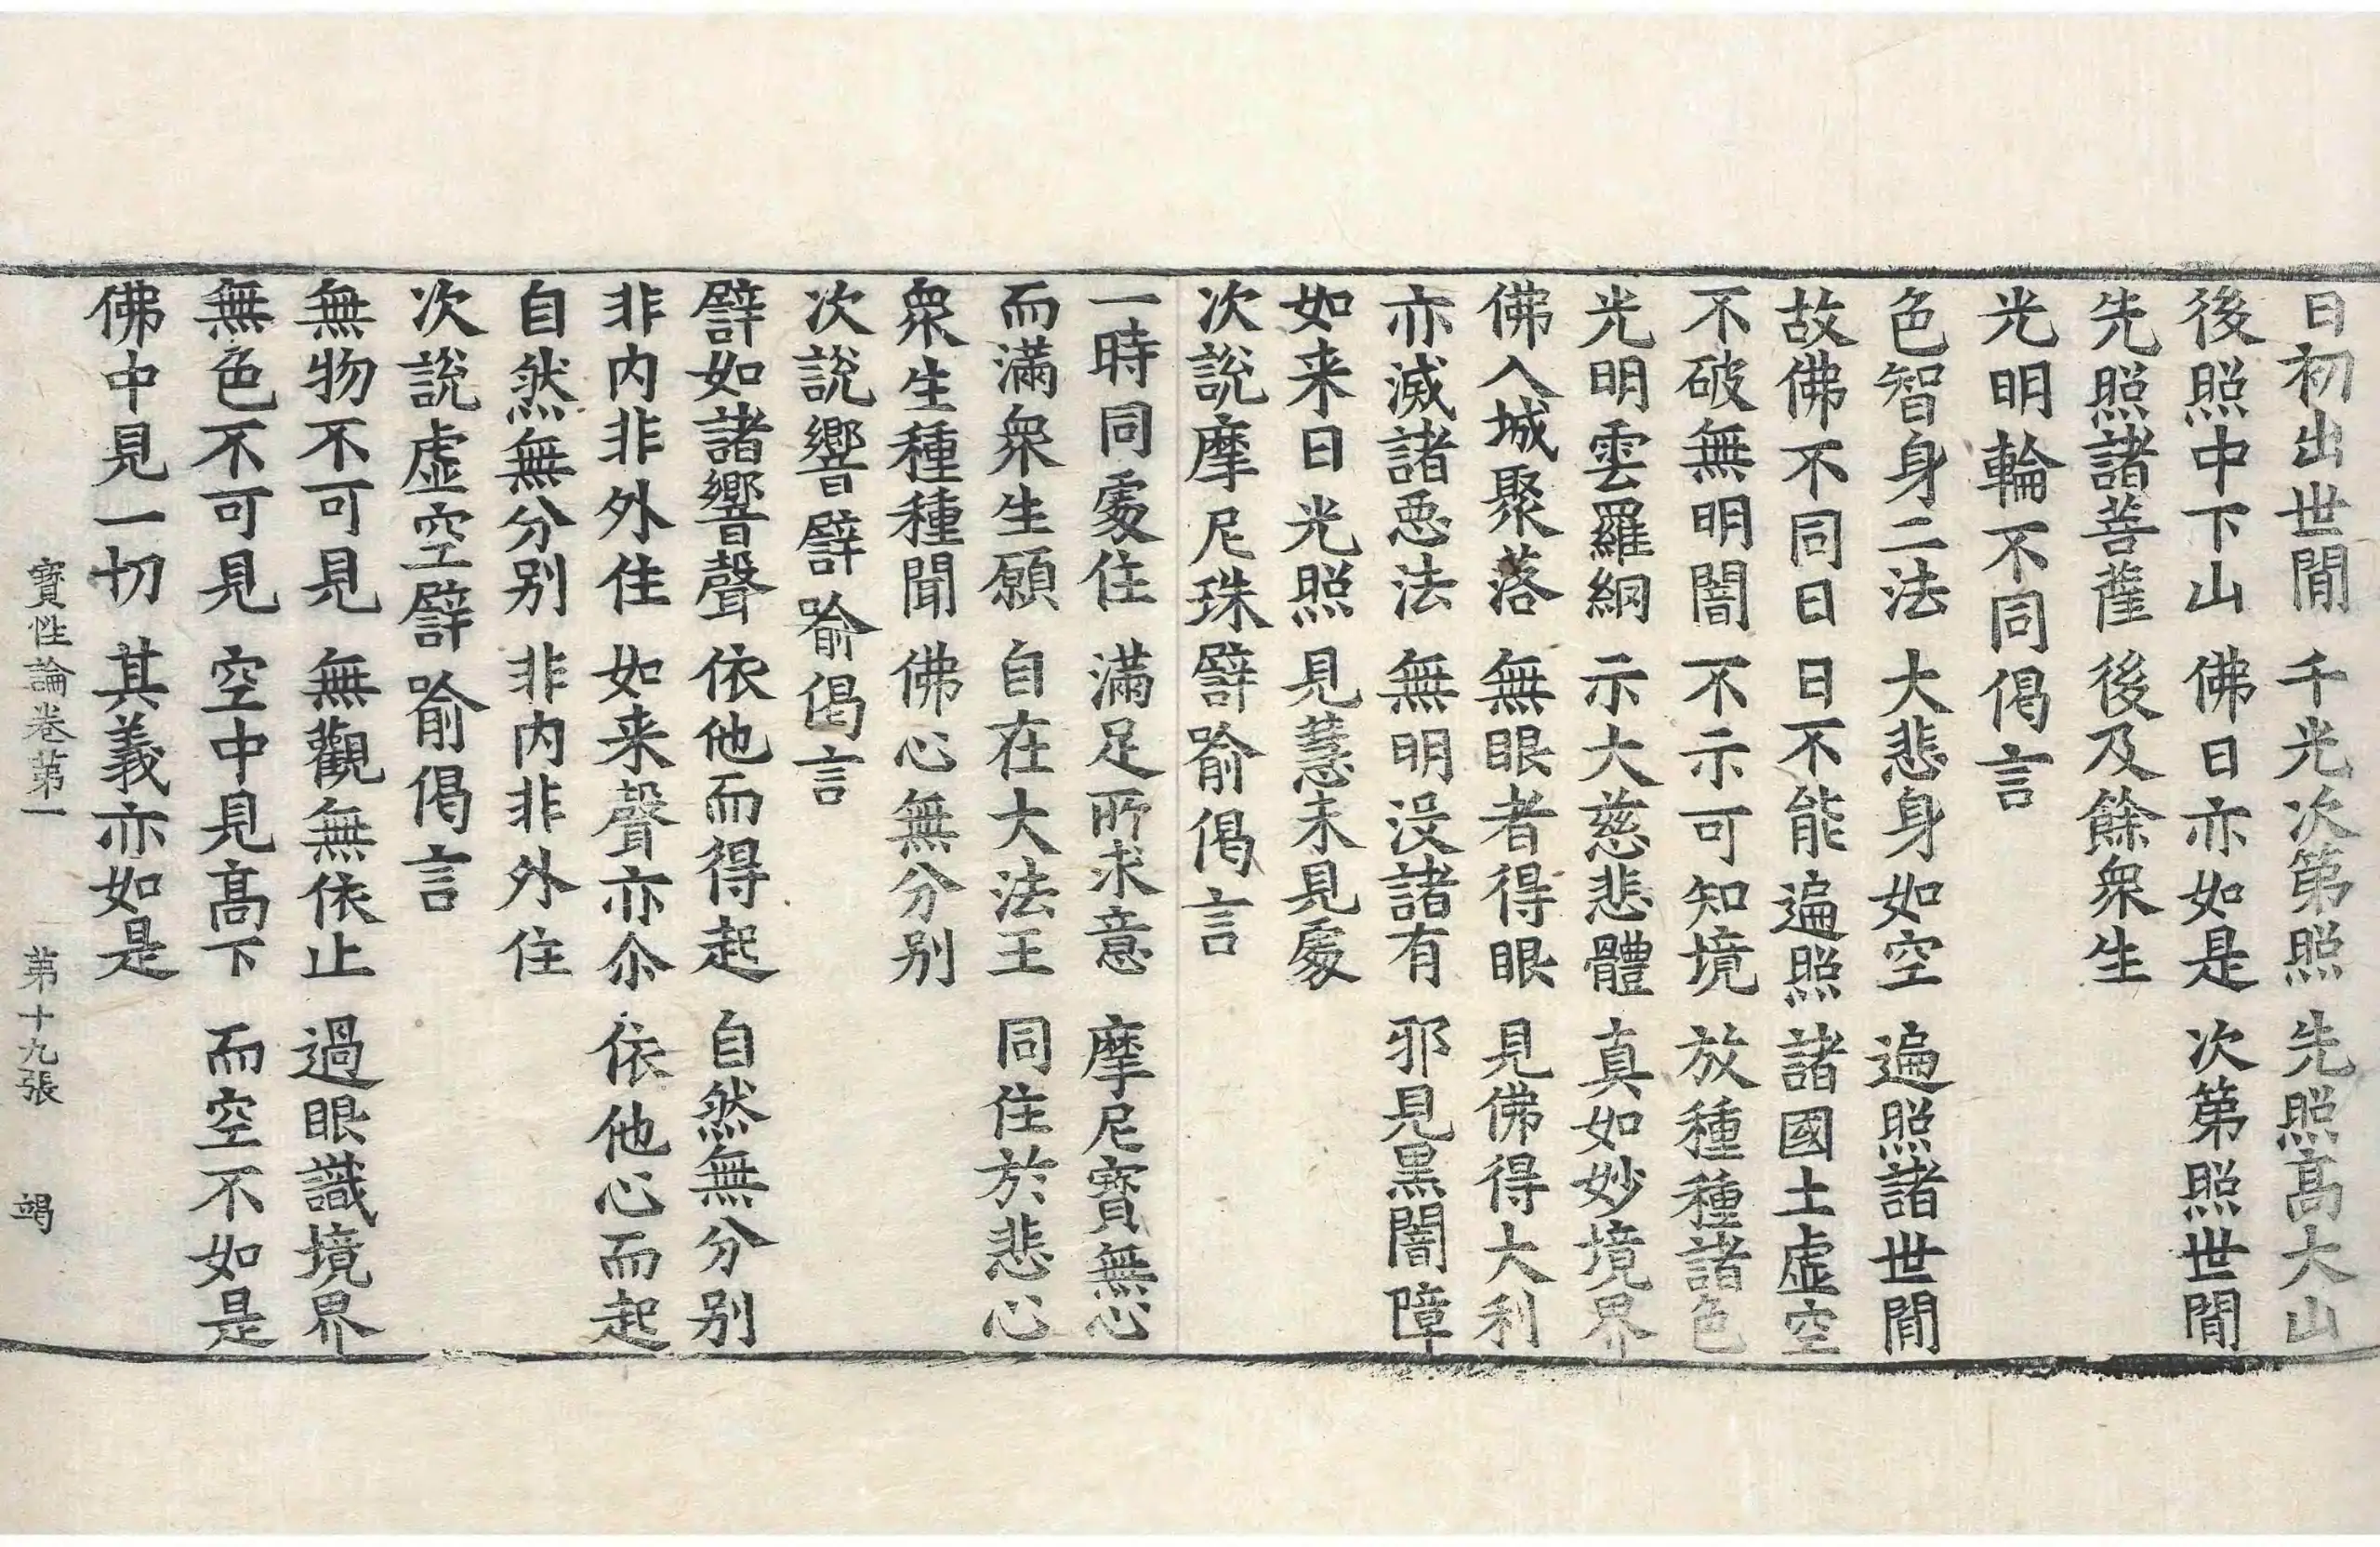 日初出世間 千光次第照 先照髙大山
後照中下山 佛日亦如是 次第照世間
先照諸菩薩 後及餘衆生
光明輪不同偈言
色智身二法 大悲身如空 遍照諸世間
故佛不同日 日不能遍照 諸國土虛空
不破無明闇 不示可知境 放種種諸色
光明雲羅網 示大慈悲體 真如妙境界
佛入城聚落 無眼者得眼 見佛得大利
亦滅諸惡法 無明没諸有 邪見黒闇障
如来日光照 見慧未見處
次說摩尼珠譬喻偈言
一時同處住 滿足所求意 摩尼寶無心
而滿衆生願 自在大法王 同住於悲心
衆生種種聞 佛心無分別
次說響譬喻偈言
譬如諸響聲 依他而得起 自然無分別
非内非外住 如来聲亦尒 依他心而起
自然無分別 非内非外住
次說虛空譬喻偈言
無物不可見 無觀無依止 過眼識境界
無色不可見 空中見髙下 而空不如是
佛中見一切 其義亦如是
寶性論卷第一 第十九張 竭